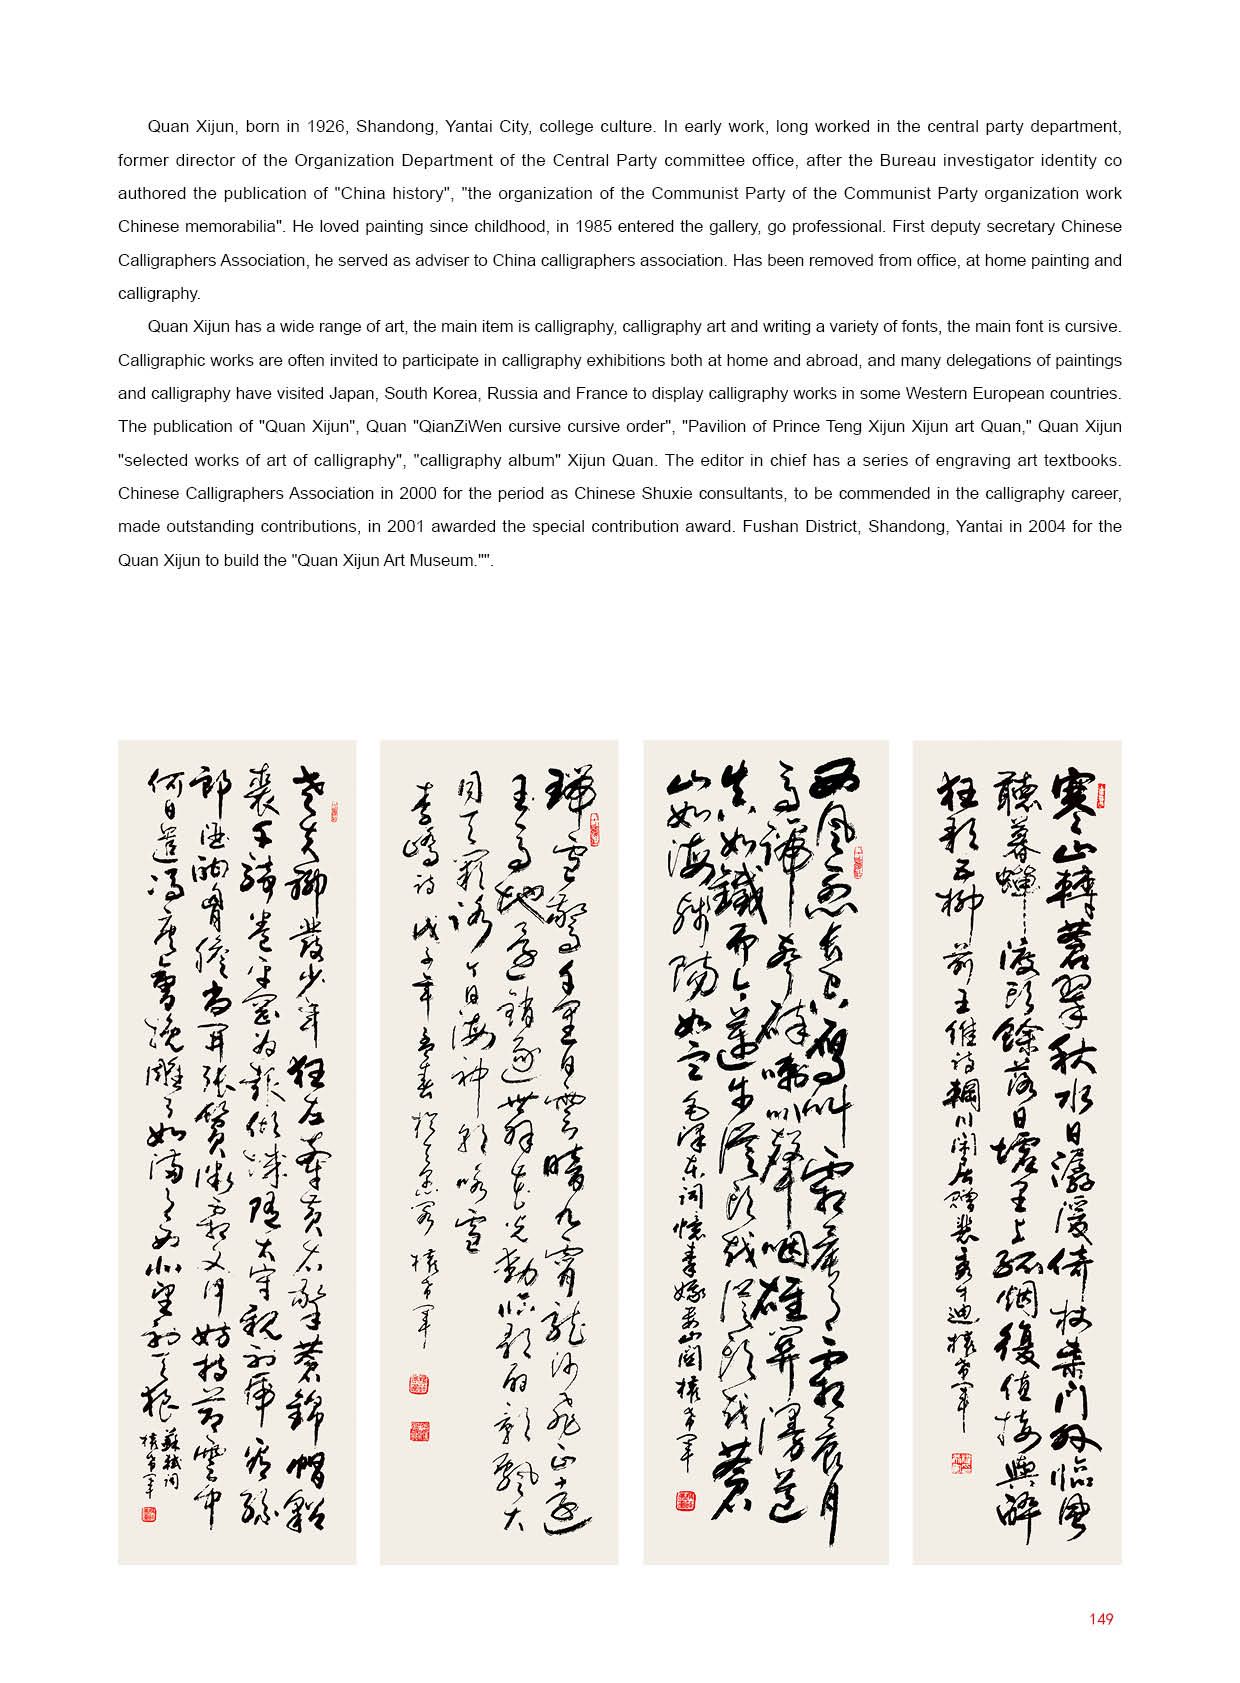 Quan Xijun, born in 1926, Shandong, Yantai City, college culture. In early work, long worked in the central party department,
former director of the Organization Department of the Central Party committee office, after the Bureau investigator identity co
authored the publication of "China history", "the organization of the Communist Party of the Communist Party organization work
Chinese memorabilia". He loved painting since childhood, in 1985 entered the gallery, go professional. First deputy secretary Chinese
Calligraphers Association, he served as adviser to China calligraphers association. Has been removed from office, at home painting and
calligraphy.
Quan Xijun has a wide range of art, the main item is calligraphy, calligraphy art and writing a variety of fonts, the main font is cursive.
Calligraphic works are often invited to participate in calligraphy exhibitions both at home and abroad, and many delegations of paintings
and calligraphy have visited Japan, South Korea, Russia and France to display calligraphy works in some Western European countries.
The publication of "Quan Xijun", Quan "QianZiWen cursive cursive order", "Pavilion of Prince Teng Xijun Xijun art Quan," Quan Xijun
"selected works of art of calligraphy", "calligraphy album" Xijun Quan. The editor in chief has a series of engraving art textbooks.
Chinese Calligraphers Association in 2000 for the period as Chinese Shuxie consultants, to be commended in the calligraphy career,
made outstanding contributions, in 2001 awarded the special contribution award. Fushan District, Shandong, Yantai in 2004 for the
Quan Xijun to build the "Quan Xijun Art Museum."".
寒山轉蒼翠秋水日潺湲倚杖柴門外臨風
聽暮蟬渡頭餘落日墟里上孤烟復值接輿醉
狂歌五柳前王維詩輞川閒居贈裴秀才迪權希軍
西風烈長空雁叫霜晨月霜晨月
馬蹄聲碎喇叭聲咽雄關漫道
真如鐵而今邁步從頭越從頭越蒼
山如海殘陽如血毛澤東詞憶秦娥婁山關權希軍
瑞雪驚千里同雲暗九霄龍沙飛正遠
玉馬地還銷逐舞花光動臨歌扇影飄大
周天闕路今日海神朝咏雪
李嶠詩戊子年孟春於權希軍
老夫聊發少年狂左牽黃右擎蒼錦帽貂
裘千騎卷平岡為報傾城隨太守親射虎看孫
郎酒酣胸膽尚開張鬢微霜又何妨持節雲中
何日遣馮唐會挽雕弓如滿月西北望射天狼
蘇軾詞
權希軍
149